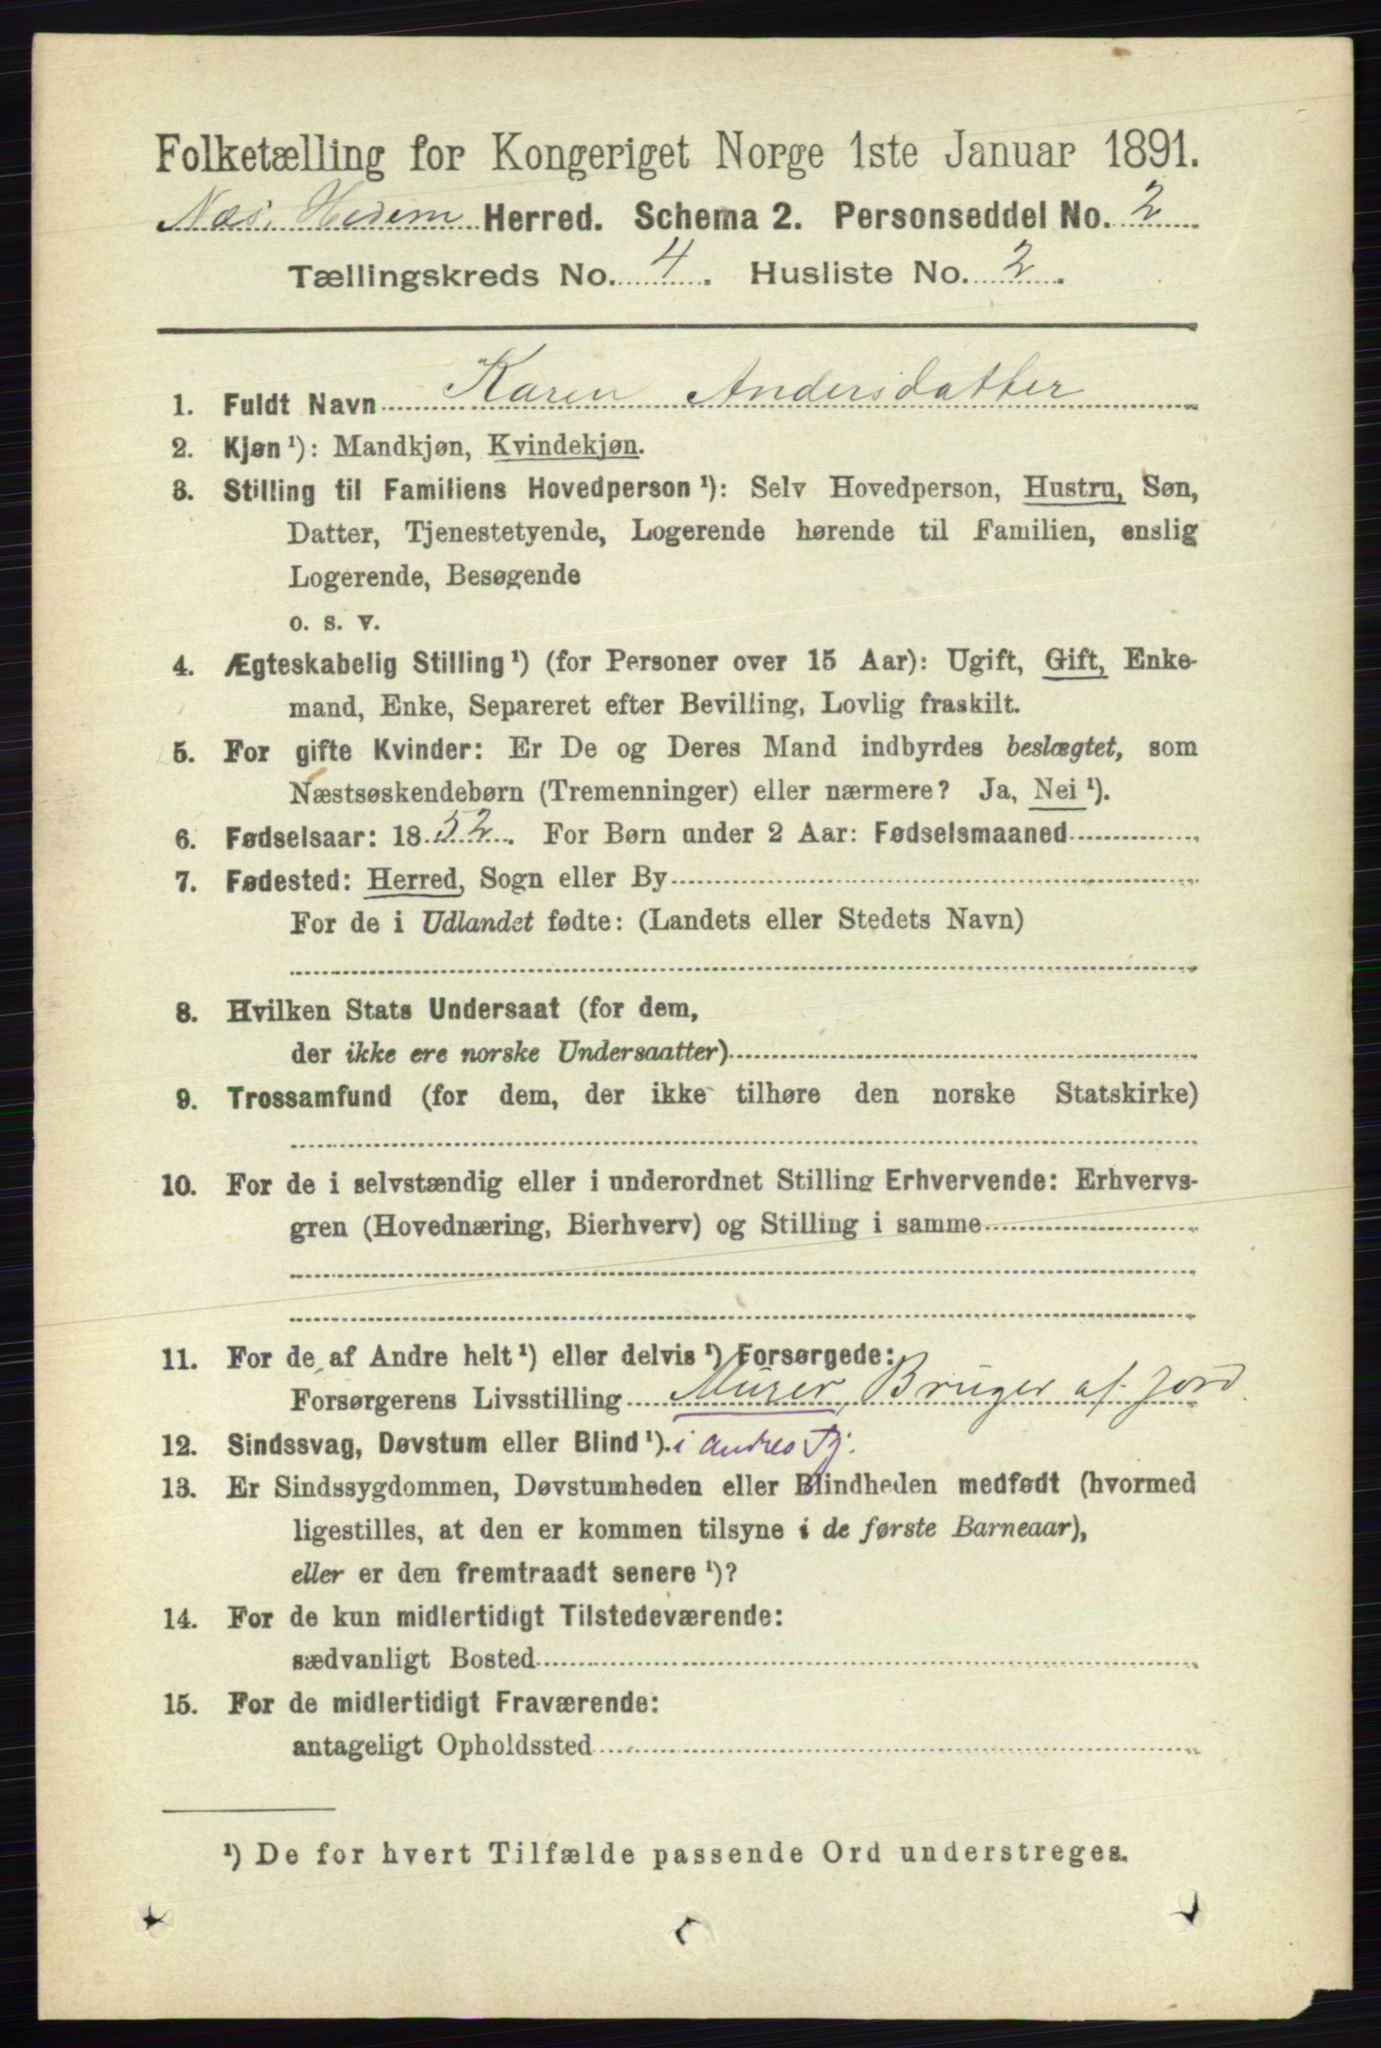 Folketælling for Kongeriget Norge 1ste Januar 1891.
Næs, Hedem Herred. Schema 2. Personseddel No. 2
Tællingskreds No. 4. Husliste No. 2.
1. Fuldt Navn Karen Andersdatter
2. Kjøn¹): Mandkjøn, Kvindekjøn.
3. Stilling til Familiens Hovedperson¹): Selv Hovedperson, Hustru, Søn,
Datter, Tjenestetyende, Logerende hørende til Familien, enslig
Logerende, Besøgende
o. s. v.
4. Ægteskabelig Stilling¹) (for Personer over 15 Aar): Ugift, Gift, Enke-
mand, Enke, Separeret efter Bevilling, Lovlig fraskilt.
5. For gifte Kvinder: Er De og Deres Mand indbyrdes beslægtet, som
Næstsøskendebørn (Tremenninger) eller nærmere? Ja, Nei¹).
6. Fødselsaar: 1852. For Børn under 2 Aar: Fødselsmaaned
7. Fødested: Herred, Sogn eller By
For de i Udlandet fødte: (Landets eller Stedets Navn)
8. Hvilken Stats Undersaat (for dem,
der ikke ere norske Undersaatter)
9. Trossamfund (for dem, der ikke tilhøre den norske Statskirke)
10. For de i selvstændig eller i underordnet Stilling Erhvervende: Erhvervs-
gren (Hovednæring, Bierhverv) og Stilling i samme
11. For de af Andre helt¹) eller delvis¹) Forsørgede:
Forsørgerens Livsstilling Murer, Bruger af Jord
12. Sindssvag, Døvstum eller Blind¹). i andres Tj.
13. Er Sindssygdommen, Døvstumheden eller Blindheden medfødt (hvormed
ligestilles, at den er kommen tilsyne i de første Barneaar),
eller er den fremtraadt senere¹)?
14. For de kun midlertidigt Tilstedeværende:
sædvanligt Bosted
15. For de midlertidigt Fraværende:
antageligt Opholdssted
¹) De for hvert Tilfælde passende Ord understreges.